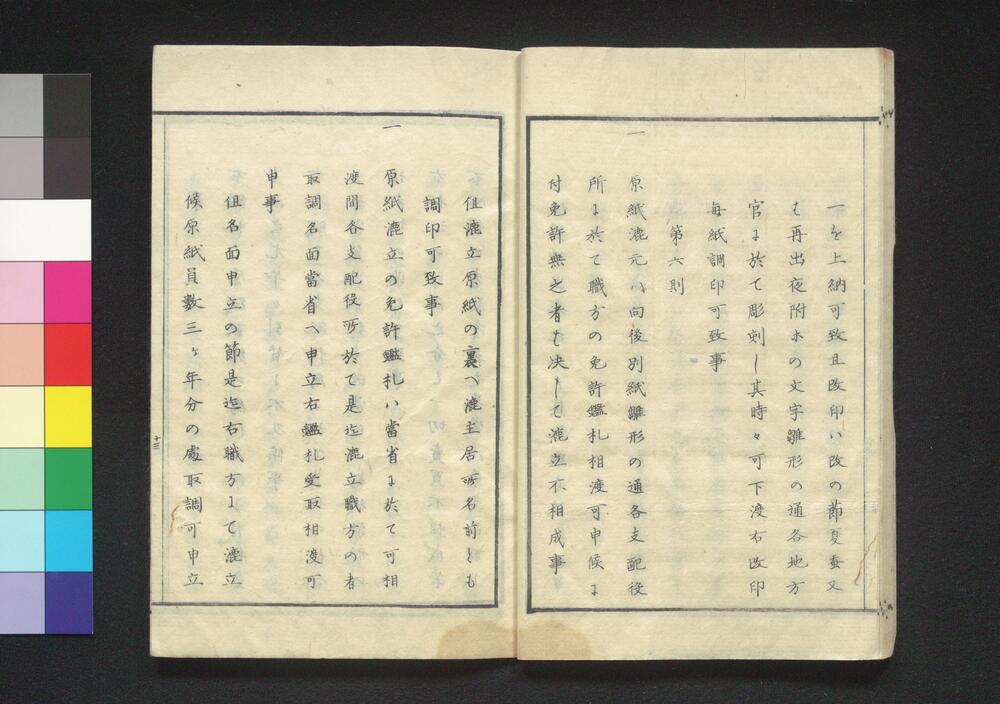 一を上納可致且改印ハ改の節夏蚕又
は再出夜附ホの文字雛形の通各地方
官ニ於て彫刻し其時々可下渡右改印
毎紙調印可致事
第六則
一
原紙漉元ハ向後別紙雛形の通各支配役
所ニ於て職方の免許鑑札相渡可申候ニ
付免許無之者も決して漉立不相成事
但漉立原紙の裏へ漉主居所名前とも
調印可致事
一
原紙漉立の免許鑑札ハ當省ニ於て可相
渡間各支配役所於て是迄漉立職方の者
取調名面當省へ申立右鑑札受取相渡可
申事
但名面申立の節是迄右職方ニて漉立
候原紙員數三ヶ年分の處取調可申立
十三